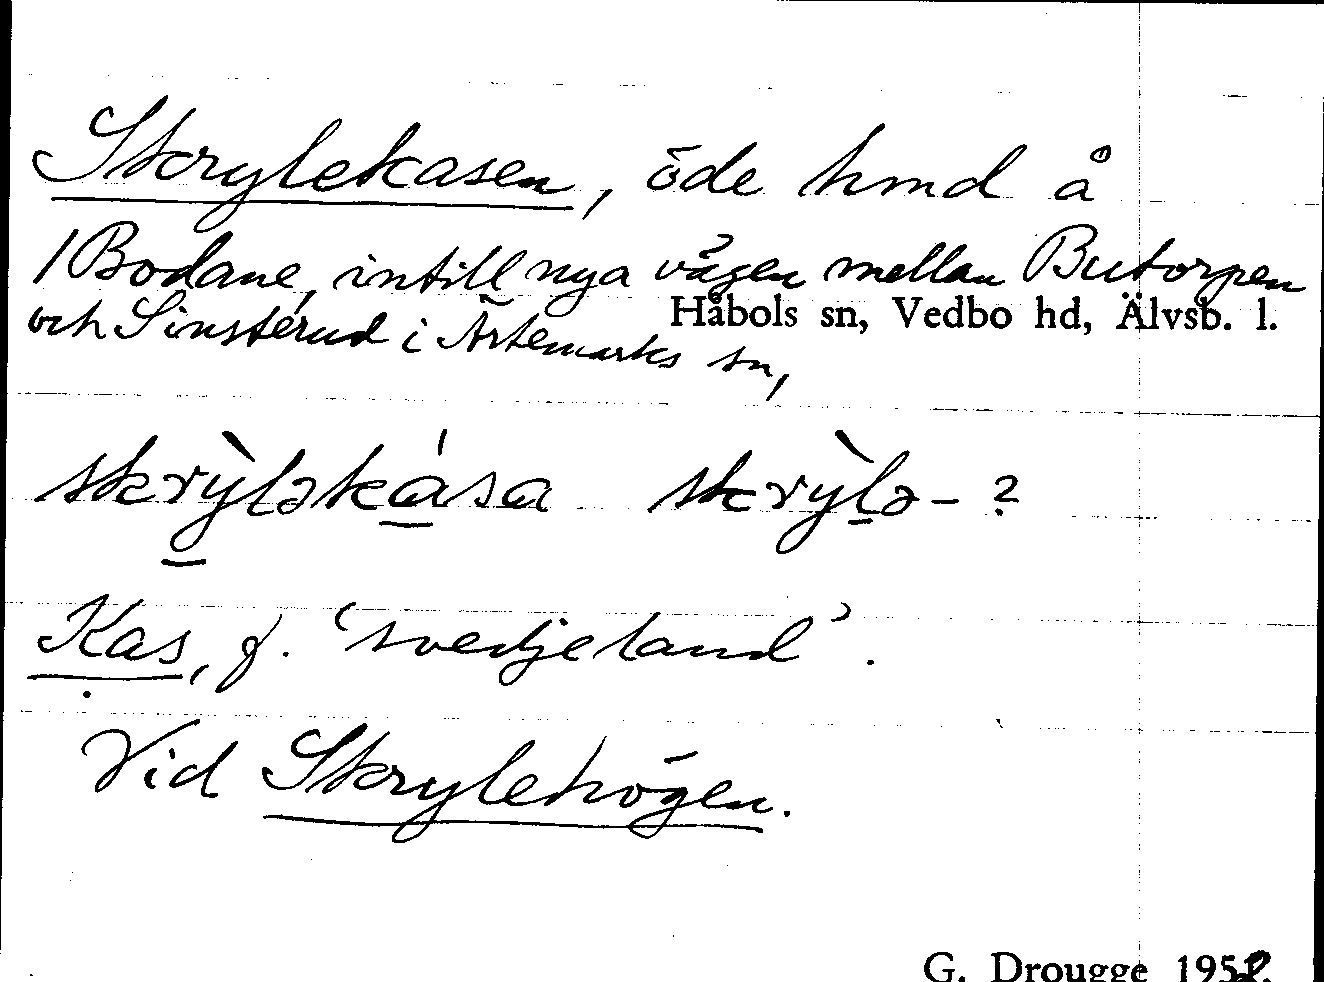 Skrylekasen, öde hmd å
1 Bodane, intill nya vägen mellan Butorpen
och Sinsterud i Ärtemarks sn,
Håbols sn, Vedbo hd, Älvsb. l.
skrỳləkása skrỳlə- ?
Kas, f. 'svedjeland'.
Vid Skrylehögen.
G. Drougge 1952.